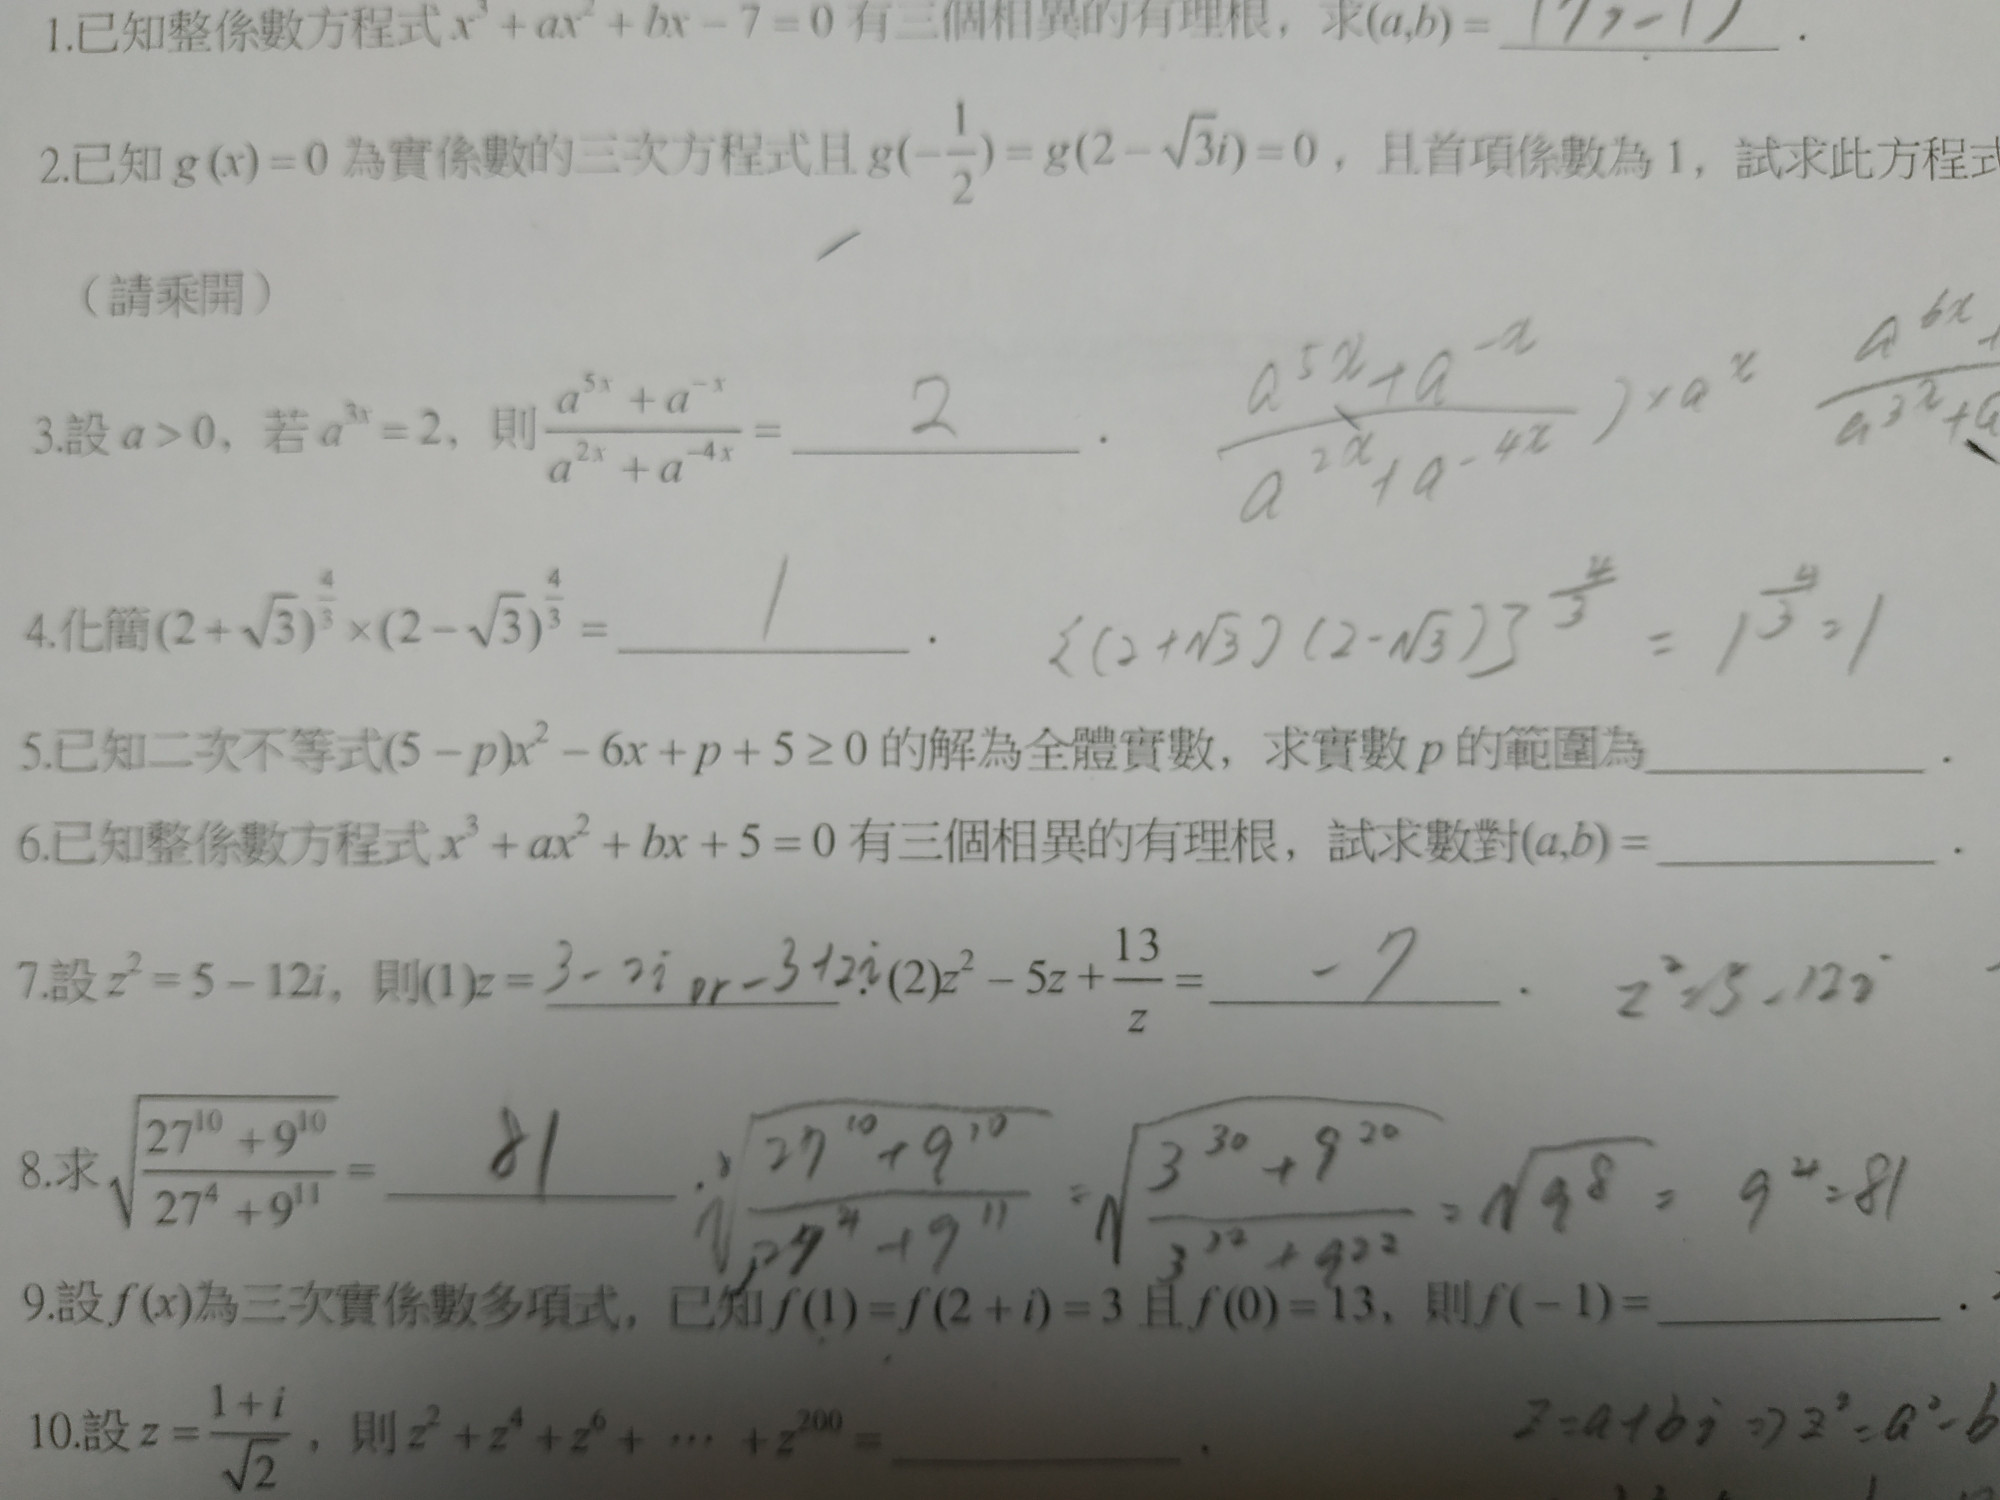 1.已知整係數方程式 x³ + ax² + bx − 7 = 0 有三個相異的有理根，求(a,b) = (7, -1) .
2.已知 g(x) = 0 為實係數的三次方程式且 g(−1/2) = g(2 − √3i) = 0，且首項係數為 1，試求此方程式
（請乘開）
3.設 a > 0，若 a^{3x} = 2，則 (a^{5x} + a^{-x})/(a^{2x} + a^{-4x}) = 2 . (a^{5x} + a^{-x})/(a^{2x} + a^{-4x}) ) × a^x
4.化簡(2 + √3)^{4/3} × (2 − √3)^{4/3} = 1 . {(2+√3)(2-√3)}^{4/3} = 1^{4/3} = 1
5.已知二次不等式(5 − p)x² − 6x + p + 5 ≥ 0 的解為全體實數，求實數 p 的範圍為 .
6.已知整係數方程式 x³ + ax² + bx + 5 = 0 有三個相異的有理根，試求數對(a,b) = .
7.設 z² = 5 − 12i，則(1)z = 3-2i or -3+2i .(2)z² − 5z + 13/z = -7 . z² = 5 - 12i
8.求 √((27^{10} + 9^{10})/(27^4 + 9^{11})) = 81 . √((27^{10} + 9^{10})/(27^4 + 9^{11})) = √((3^{30} + 9^{20})/(3^{12} + 9^{22})) = √(9^8) = 9^4 = 81
9.設 f(x)為三次實係數多項式，已知 f(1) = f(2 + i) = 3 且 f(0) = 13，則 f(−1) = .
10.設 z = (1 + i)/√2，則 z² + z⁴ + z⁶ + ⋯ + z^{200} = . z = a + bi ⇒ z² = a² - b